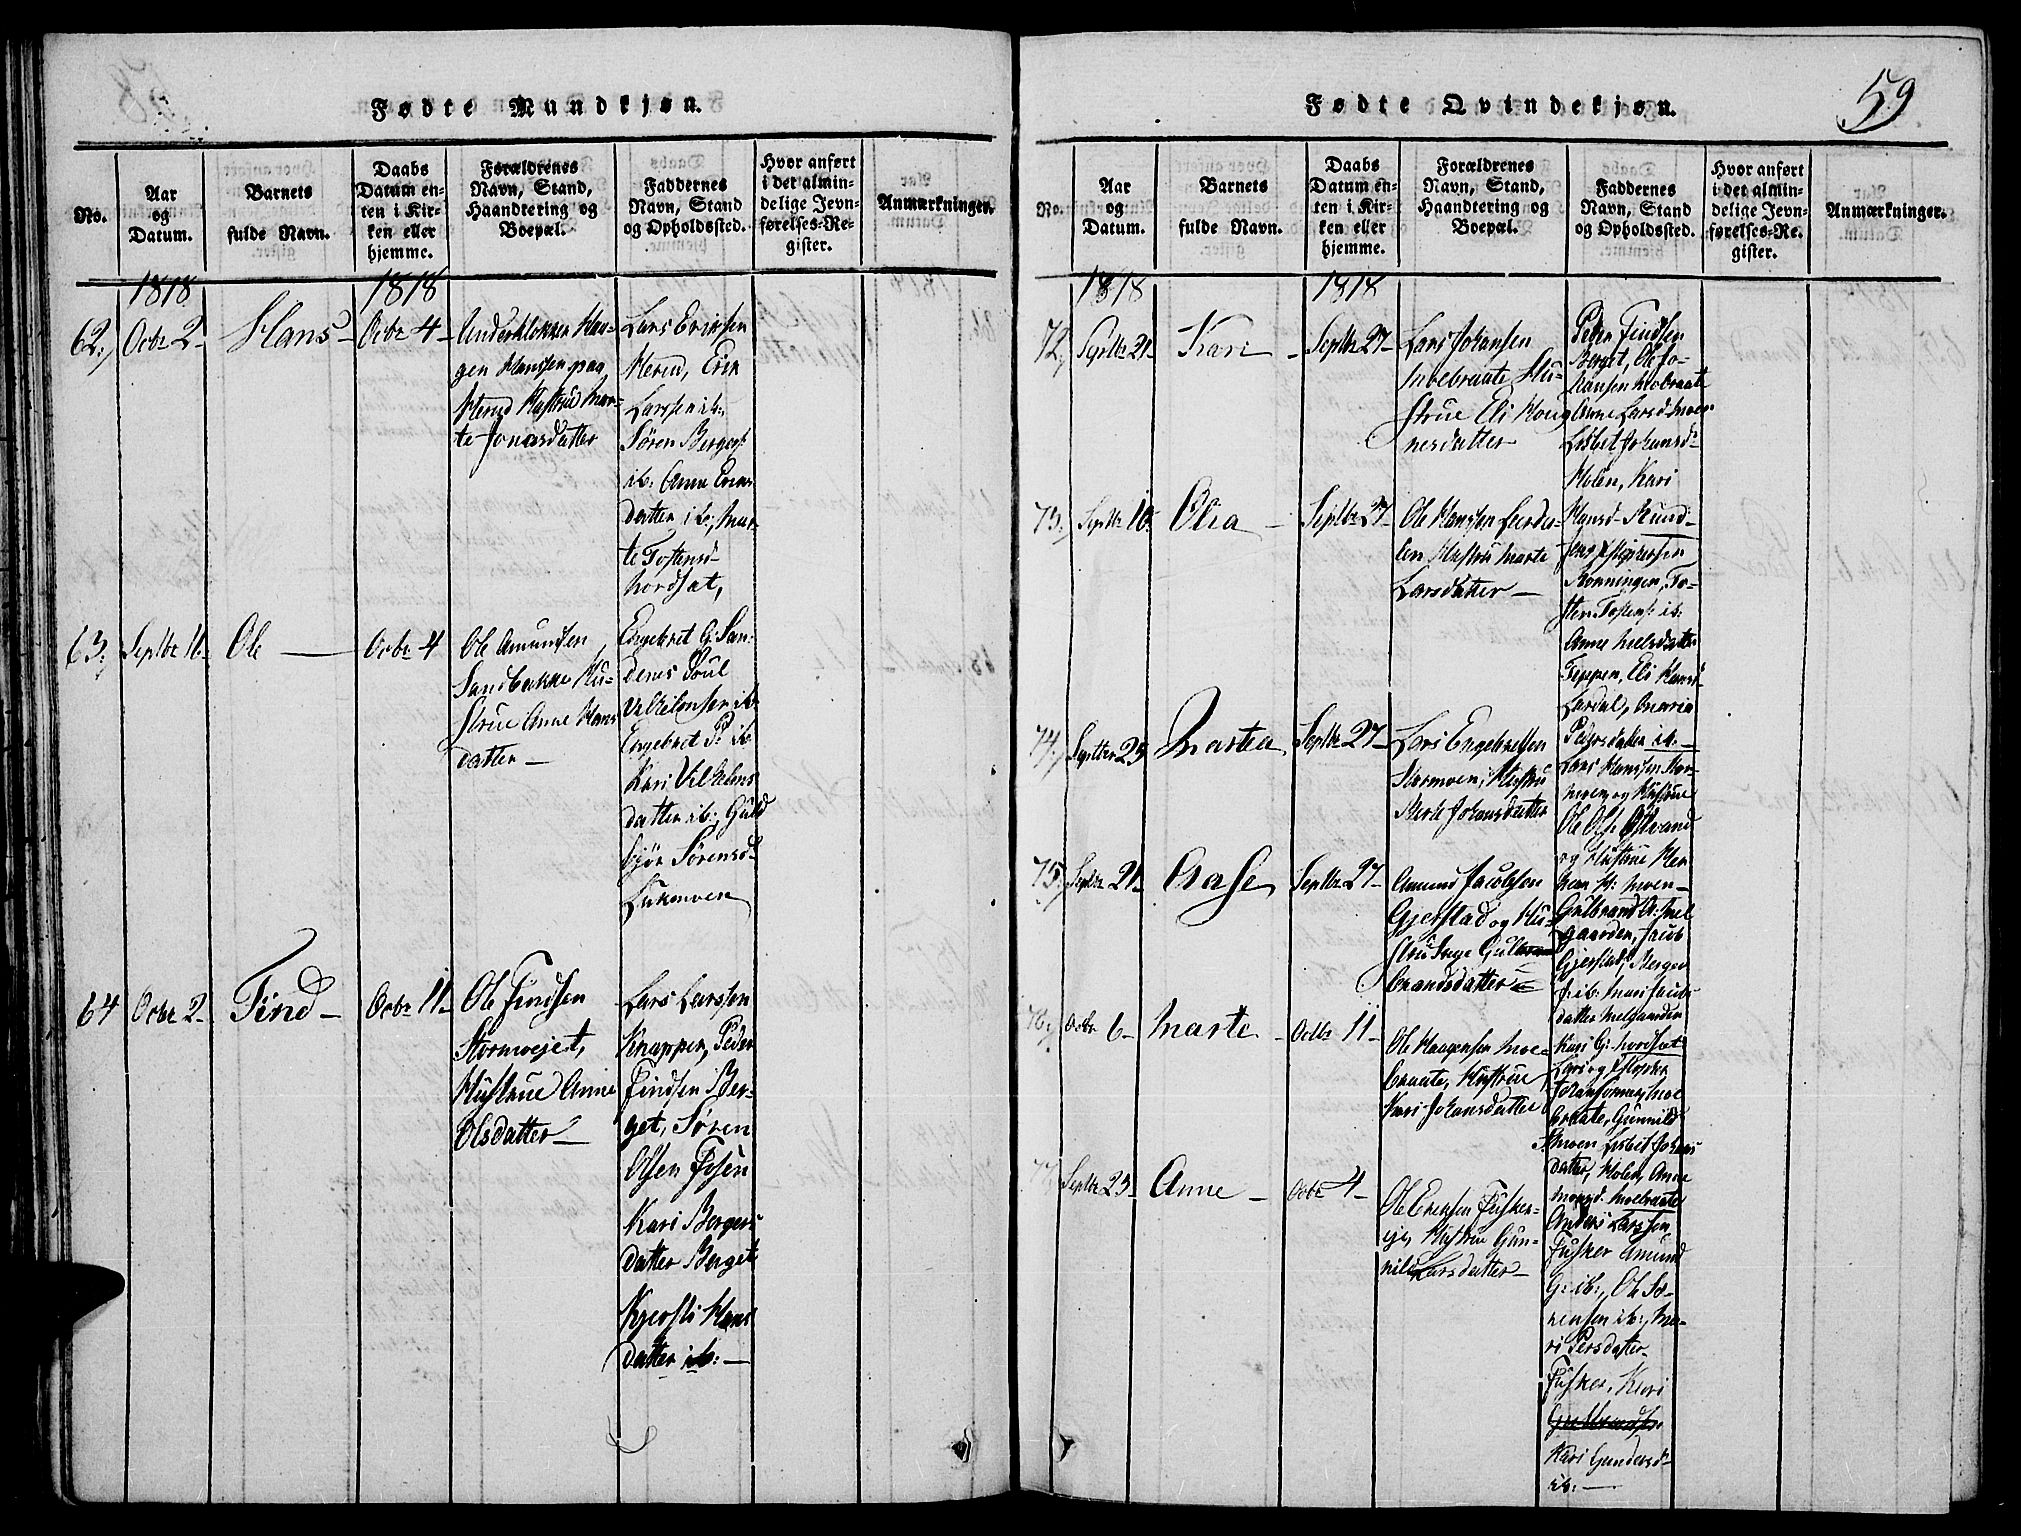 Fødte Mundkjøn.
No.
Aar
og
Datum.
Barnets
fulde Navn.
Daabs
Datum en-
ten i Kir-
ken eller
hjemme.
Forældrenes
Navn, Stand,
Haandtering og
Boepæl.
Faddernes
Navn, Stand
og Opholdssted.
Hvor anført
i det almin-
delige Jevn-
førelses-Re-
gister.
Anmærkninger.
1818
1818
62.
Octbr 2
Hans
Octbr 4
gen Hanssen paa
Hustrue Mar-
te Jonasdatter
Lars Eriksen
Erik
Larssen ib:
Søren
ib: Anne
datter ib: Mar-
te Tostensd.
Nordsæt,
63.
Septbr 16
Ole
Octbr 4
Ole Amundsen
Sandbakke Hu-
strue Anne Hans
datter
Engebret G: San-
denes Poul
Vilhelmsen ib:
Engebret P: ib:
Kari Vilhelms
datter ib: Guld
bjør Sørensd.
64
Octbr 2
Find
Octbr 11
Ole Findsen
Stormoejet,
Hustrue Anne
Olsdatter
Lars Larssen
Knappen, Peder
Findsen Ber-
get, Søren
Olsen
Kari Bergers
datter Berget
Kjersti Hans
datter ib:
Fødte Qvindekjøn.
59
No.
Aar
og
Datum.
Barnets
fulde Navn.
Daabs
Datum en-
ten i Kir-
ken eller
hjemme.
Forældrenes
Navn, Stand,
Haandtering og
Boepæl.
Faddernes
Navn, Stand
og Opholdssted.
Hvor anført
i det almin-
delige Jevn-
førelses-Re-
gister.
Anmærkninger.
1818
1818
72.
Septbr 21
Kari
Septbr 27
Lars Johansen
Moebraate Hu-
strue Eli Mog
nesdatter
Peder Findsen
Berget, Ole Jo-
hansen Moebraate
Anne Larsd. Moen
Lisbet Johansd.
Holen, Kari
73.
Septbr 16
Olea
Septbr 27
Ole Hanssen
Hustru Marte
Larsdatter
Hansd.
Rønningen, To-
sten Tostens: ib:
Anne Nielsdatter
Teppen, Eli Hansd.
Maria
Pedersdatter ib:
74.
Septbr 25
Martea
Septbr 27
Lars Engebretsen
Stormoen, Hustru
Johansdatter
Lars Hanssen Stor-
moen og Hustrue
Ole Ols:
og Hustrue
Moen
75.
Septbr 21
Aase
Septbr 27
Amund Jacobsen
Gjerstad og Hu-
stru Inge Gul
brandsdatter
Gulbrand A: Mel
gaarden, Jacob
Gjerstad, Berger
J: ib: Mari Jacobs
datter Melgaarden
Kari G: Nordsæt
76.
Octbr 6
Marte
Octbr 11
Ole Haagensen Moe-
braate, Hustrue
Kari Johansdatter
Lars og
Johansønner Moe
braate, Gunnild
Moen Lisbet Johans
datter, Holen, Anne
Mogsd. Moebraate
77.
Septbr 25
Anne
Octbr 4
Ole Eriksen Fusker-
eje, Hustrue Gun-
nild Larsdatter
Anders Larssen
Fusker Amund
G: ib:, Ole Sø-
rensen ib:, Ma-
ri Persdatter
Fusker, Kari
Kari Gundersd.
ib: